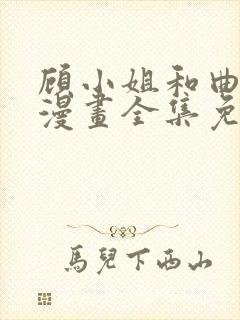 顾小姐和曲
漫畫全集免
馬兒下西山